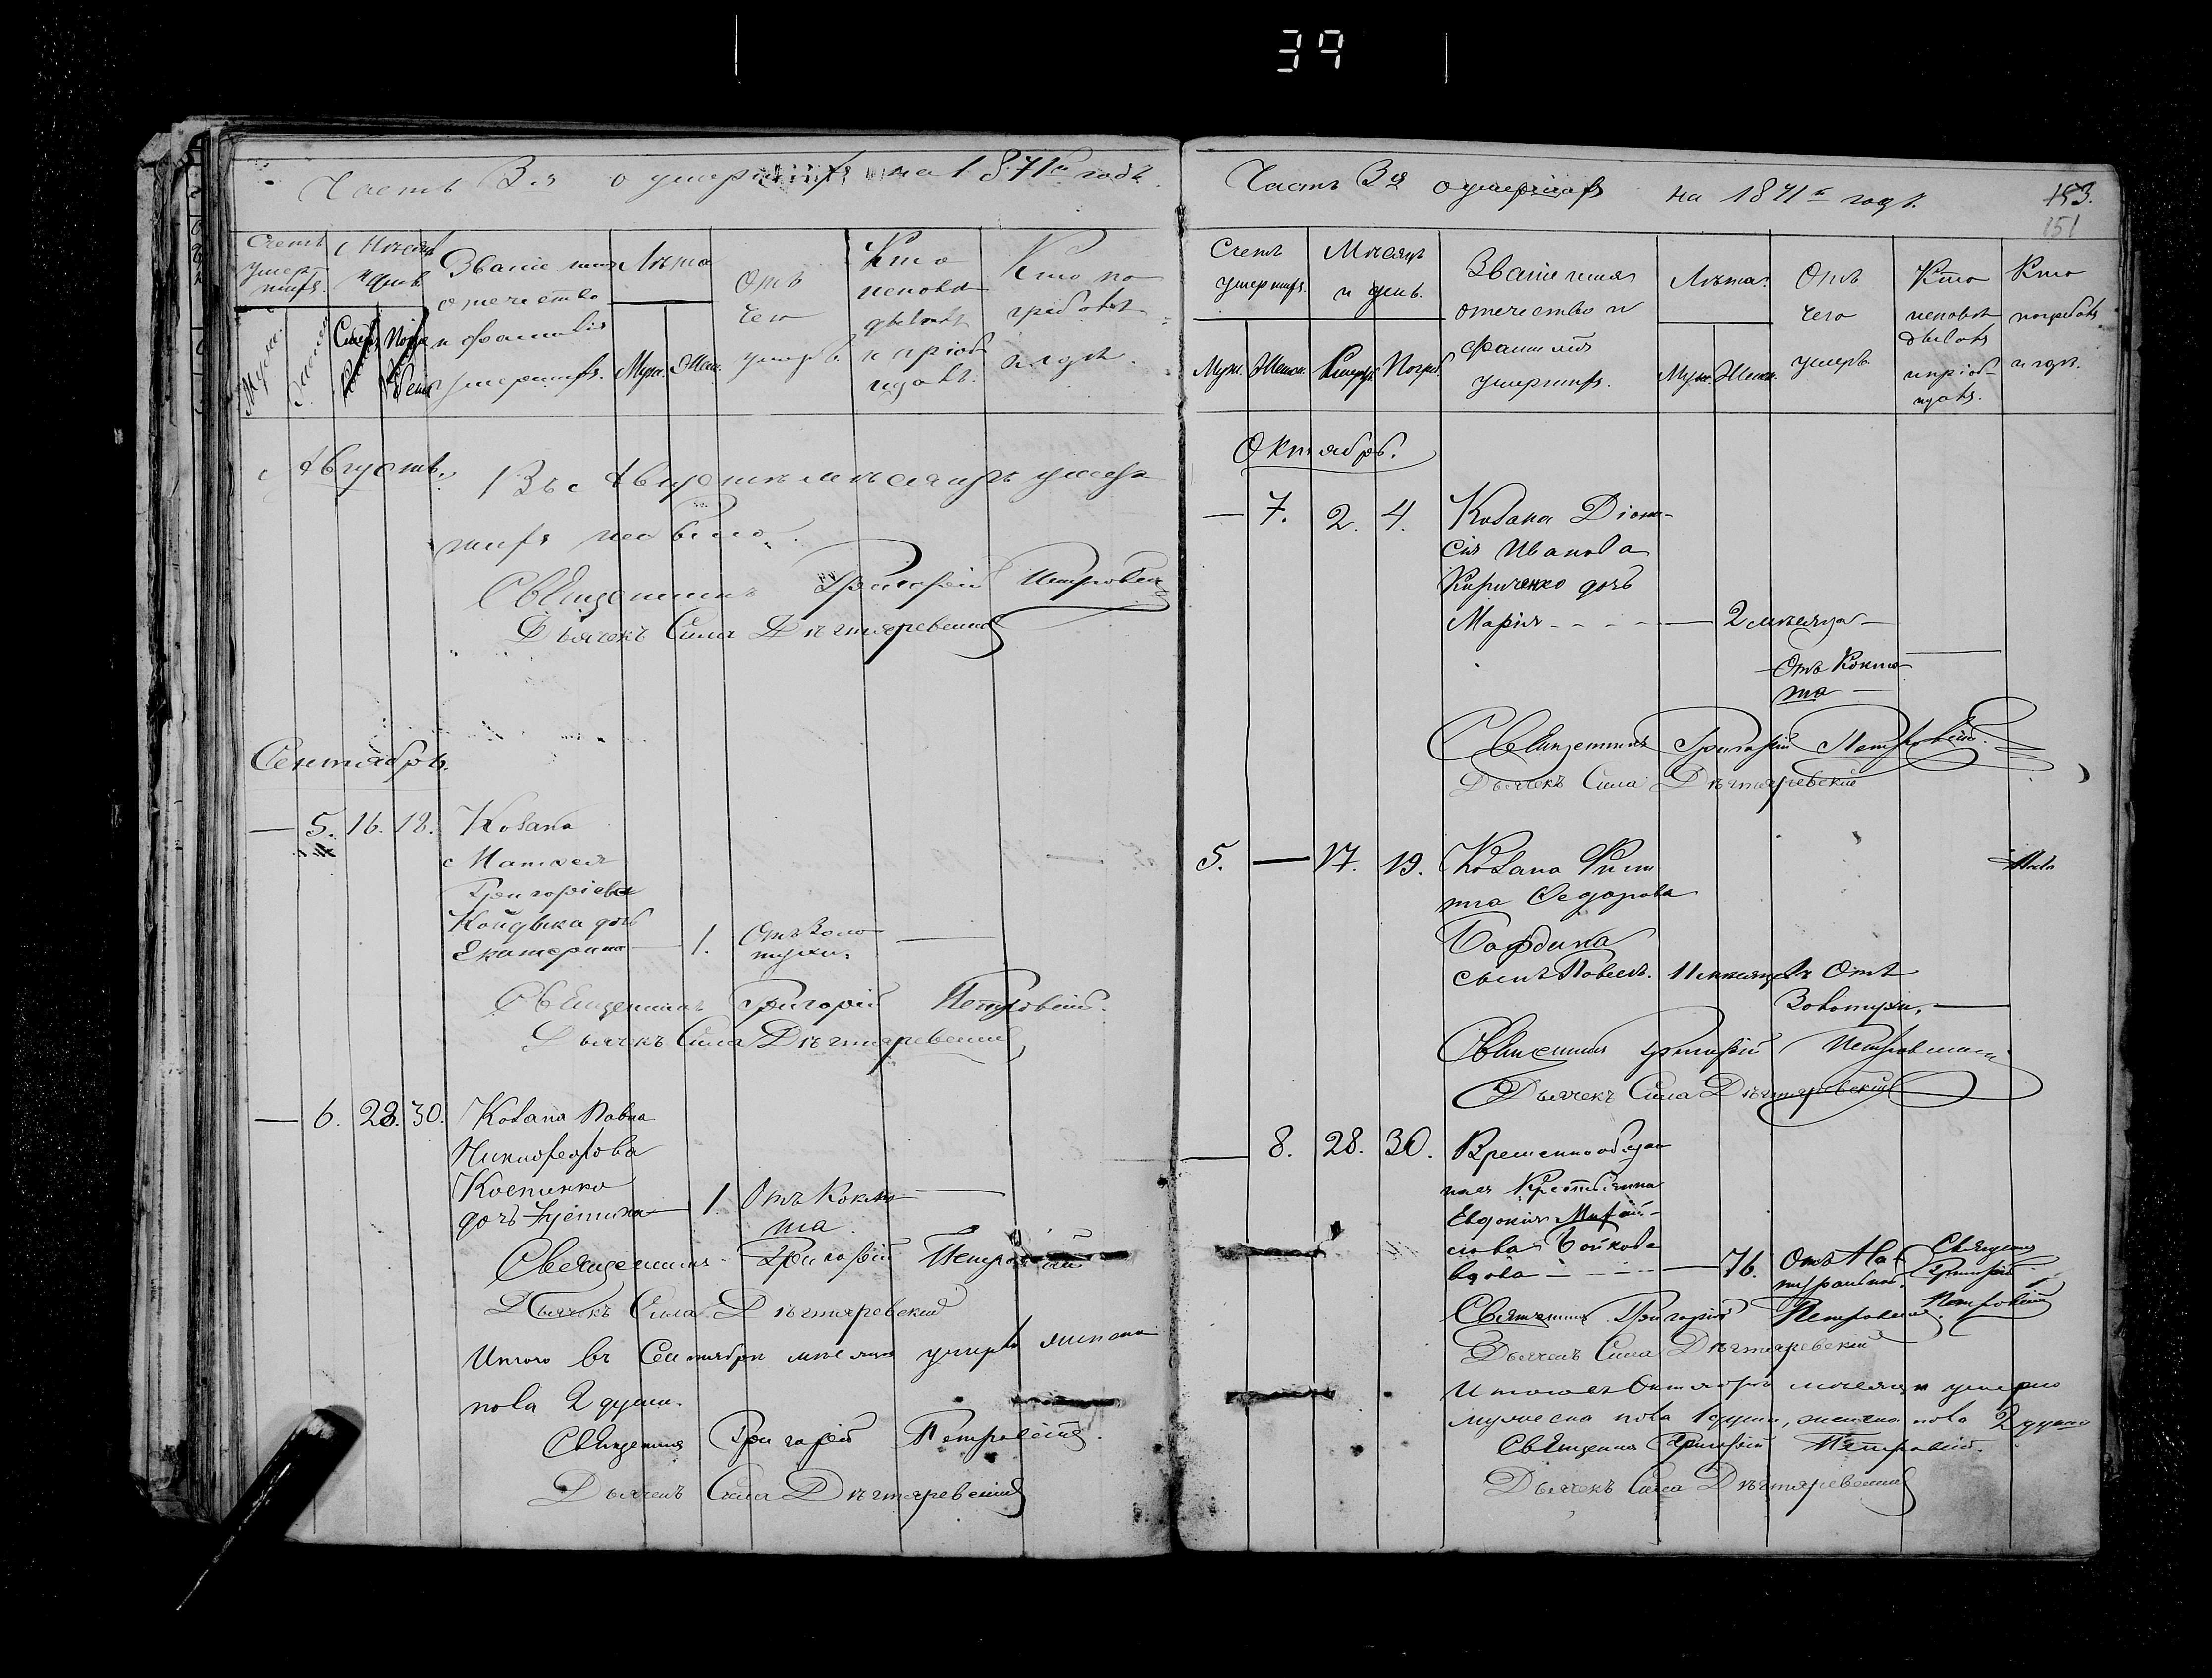 39
Часть 3я о умершихъ на 1871й годъ.
Счетъ умершихъ.
Мѣсяцъ и день.
Званіе имя отечество и фамилія умершихъ.
Лѣта
Отъ чего умеръ.
Кто исповѣдывалъ и пріобщалъ.
Кто погребалъ и гдѣ.
Муж. Жен.
Августъ.
Въ Августѣ мѣсяцѣ умер
шихъ не было.
Священникъ Григорій Петровскій
Дьячекъ Сила Дѣгтяревскій
Сентябрь.
— 5. 16. 18. Козака
Матвея
Григоріева
Койдыка дочь
Екатерина — 1. Отъ Золо
тухи. —
Священникъ Григорій Петровскій.
Дьячекъ Сила Дѣгтяревскій
— 6. 28. 30. Козака Павла
Никифорова
Костинко
дочь Іустина — 1. Отъ Коклю —
ша
Священникъ Григорій Петровскій
Дьячекъ Сила Дѣгтяревскій
Итого въ Сентябрѣ мѣсяцѣ умерло женска
пола 2 души.
Священникъ Григорій Петровскій.
Дьячекъ Сила Дѣгтяревскій
Часть 3я о умершихъ на 1871й годъ.
153.
151
Счетъ умершихъ.
Мѣсяцъ и день.
Званіе имя отечество и фамилія умершихъ.
Лѣта.
Отъ чего умеръ.
Кто исповѣдывалъ и пріобщалъ.
Кто погребалъ и гдѣ.
Муж. Женск. Погреб.
Муж. Женск.
Октябрь.
— 7. 2. 4. Козака Діони-
сія Иванова
Кириченко дочь
Марія - - - — 2 мѣсяца —
Отъ Коклю —
ша —
Священникъ Григорій Петровскій.
Дьячекъ Сила Дѣгтяревскій
5. — 17. 19. Козака
Федорова
сынъ Павелъ. 11 мѣсяцевъ Отъ
Золотухи. —
Священникъ Григорій Петровскій
Дьячекъ Сила Дѣгтяревскій
— 8. 28. 30. Временнообязан
ная Крестьянка
Евдокія Михай-
лова Бойкова
вдова - - - — 76. Отъ На
туральной. Священникъ
Григорій
Петровскій
Священникъ Григорій Петровскій.
Дьячекъ Сила Дѣгтяревскій
Итого въ Октябрѣ мѣсяцѣ умерло
мужеска пола 1 душа, женска пола 2 души
Священникъ Григорій Петровскій.
Дьячекъ Сила Дѣгтяревскій